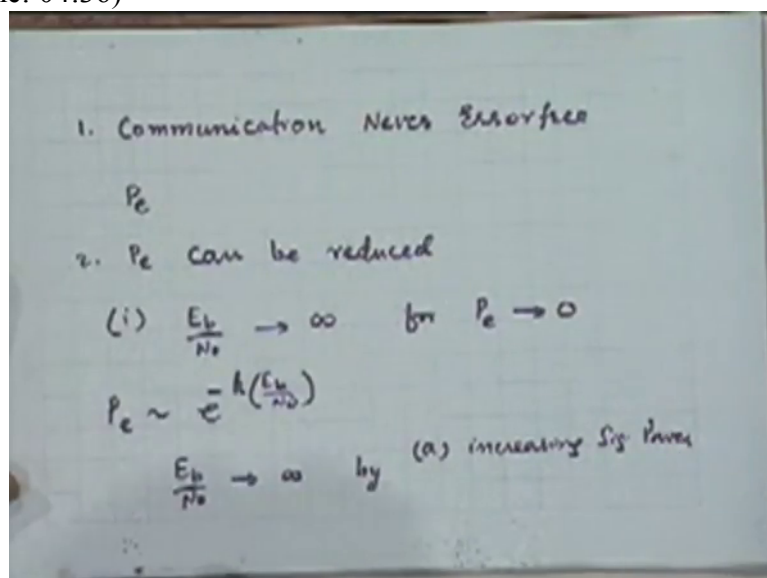 1. Communication Never Errorfree
Pe
2. Pe can be reduced
(i) Eb/No → ∞ for Pe → 0
Pe ~ e^-k(Eb/No)
Eb/No → ∞ by (a) increasing Sig Power